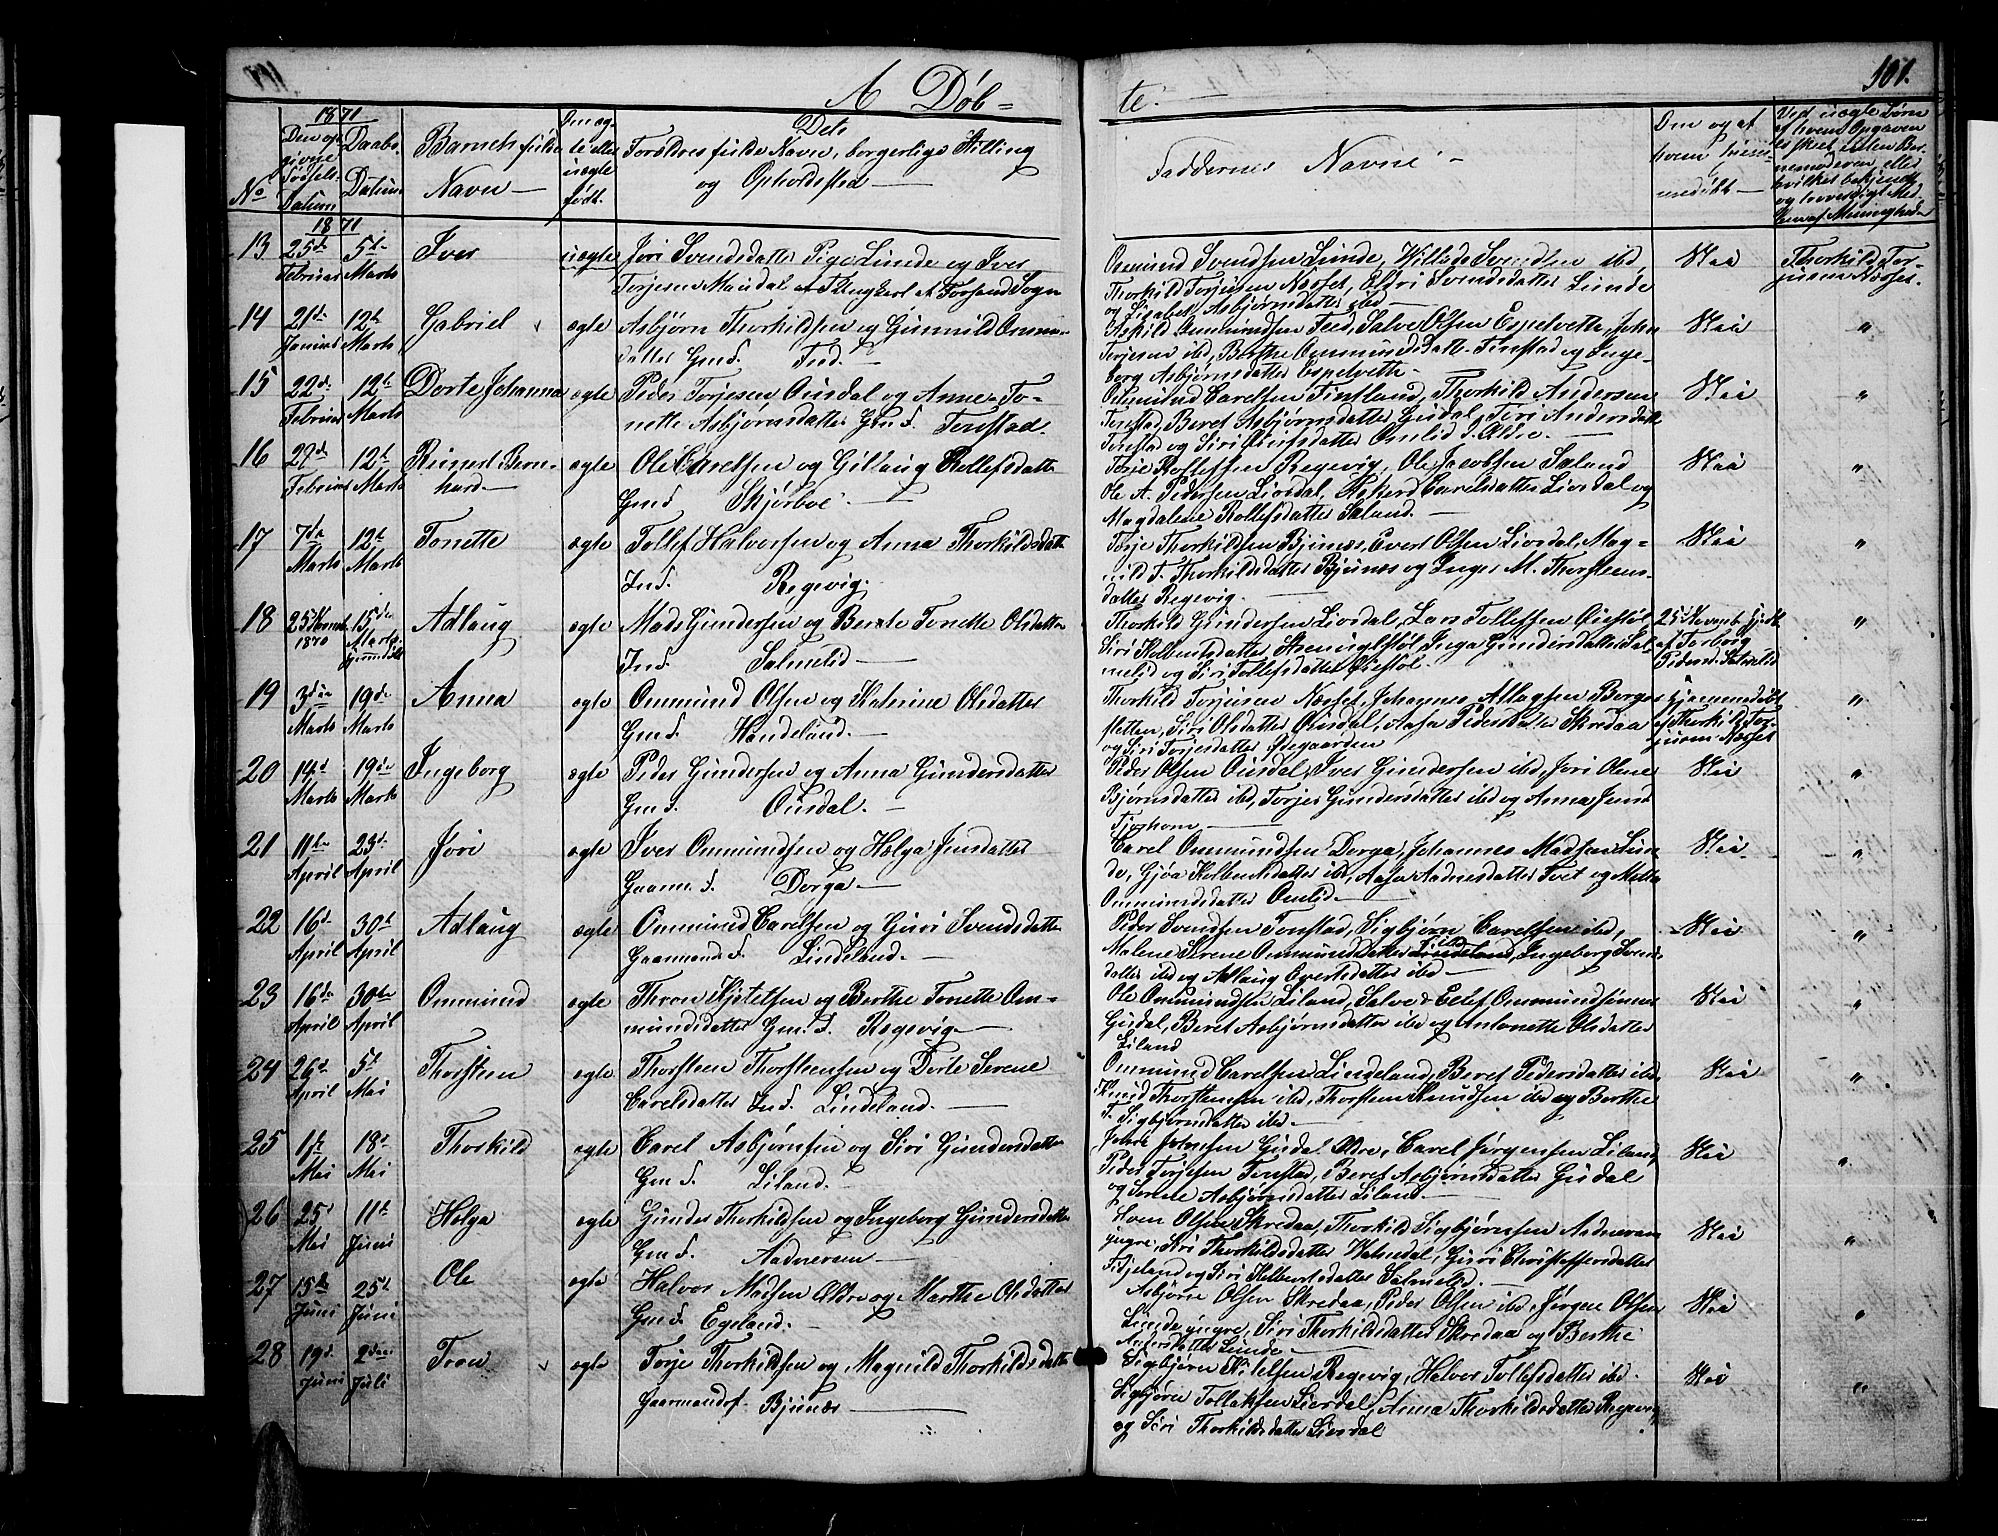 A Døb-
te.
101.
1871
No
Den op-
givne
Fødsels
Datum
Daabs.
Datum
Barnets fulde
Navn
Om æg-
te eller
uægte
født.
Dets
Forældres fulde Navn, borgerlige Stilling
og Opholdssted
Faddernes Navne
Om og af
hvem hjem-
medøbt
Ved uægte Børn
af hvem Opgaven
er skeet enten Bar-
nemoderen eller
hvilket bekjendt
og troværdigt Med-
lem af Menigheden
1871
13 25de Februar 5te Marts Iver uægte Jori Svendsdatter Pige Lunde og Iver
Torjesen Maudal et Ungkarl af Forsand Sogn
Ommund Svendsen Lunde, Villads Svendsen ibd,
Thorkild Torjusen Næsset, Eldri Svendsdatter Lunde
og Lisabet Asbjørnsdatter ibd
Nei
Thorkild Tor-
jusen Næsset.
14 21de Januar 12te Marts Gabriel ægte Asbjørn Thorkildsen og Gunnild Ommunds-
datter Gmd. Fed.
Askild Ommundsen Feed, Salve Olsen Espetveth, John
Torjesen ibd, Berthe Ommundsdatt. Tonstad og Inge-
borg Asbjørnsdatter Espetveth.
Nei "
15 22de Februar 12te Marts Dorte Johanna ægte Peder Torjesen Ousdal og Anne To-
nette Asbjørnsdatter Gmd. Tonstad.
Osmund Carelsen Fintland, Thorkild Andersen
Tonstad, Beret Asbjørnsdatter Gusdal, Jori Andersdatt
Tonstad og Siri Omundsdatter Omlid d. Eldre.
Nei "
16 27de Februar 12te Marts Reinert Bern-
hard ægte Ole Carelsen og Gillaug Rollefsdatter
Gmd Skjerboe.
Torje Rollefsen Regevig, Ole Jacobsen Saland
Ole A. Pedersen Liosdal, Askerd Carelsdatter Liosdal og
Magdalene Rollefsdatter Saland.
Nei "
17 7de Marts 12te Marts Tonette ægte Tollef Halvorsen og Anna Thorkildsdatt
Ind. Regevig.
Torje Thorkildsen Bjunes, Evert Olsen Liosdal, Mag-
nild T. Thorkildsdatter Bjunes og Inger M. Thorsteens-
datter Regevig.
Nei "
18 25 Novemb. 1870 15de Marts hjemmedøbt Adlaug ægte Mads Gundersen og Berete Tonette Olsdatter
Ind. Salmelid
Thorkild Gundersen Liosdal, Lars Tollefsen Ousstøl
Siri Kolbensdatter Skreningstøl, Inga Gundersdatter Sal-
melid og Siri Tollefsdatter Ousstøl.
25 Novemb. hjdt
af Torborg
Pedersd. Salmelid
"
19 3die Marts 19de Marts Anna ægte Ommund Olsen og Katrine Olsdatter
Gmd. Handeland.
Thorkild Torjusen Næsset, Johannes Atlagsen Borge-
sletten, Siri Olsdatter Ousdal, Aasa Pedersdatter Skredaa
og Siri Torjesdatter Ødegaarden
hjemmedøbt
af Thorkild Tor-
jusen Næsset
"
20 14d Marts 19de Marts Ingeborg ægte Peder Gundersen og Anna Gundersdatter
Gmd. Ousdal.
Peder Olsen Ousdal, Iver Gundersen ibd, Jori Olene
Bjørnsdatter ibd, Torjer Gundersdatter ibd og Anna Jensd
Tjørhom
Nei "
21 11te April 23d April Jori ægte Iver Ommundsen og Helga Jensdatter
Gaarmd. Dorga
Carel Ommundsen Dorga, Johannes Madsen Lun-
de, Gjøa Kolbensdatter ibd, Aasa Aadnesdatter Tveit og Mette
Ommundsdatter Omlid
Nei "
22 16d April 30d April Adlaug ægte Ommund Carelsen og Guri Svendsdatter
Gaarmand Lindeland.
Peder Svendsen Tonstad, Sigbjørn Carelsen ibd,
Malene Serene Ommundsdatter Lindeland ibid, Ingeborg Svends-
datter ibd og Adlaug Evertsdatter ibd
Nei "
23 16de April 30te April Ommund ægte Thron Kjetelsen og Berthe Tonette Om-
mundsdatter Gmd. Regevig
Ole Ommundsen Liland, Salve & Eelef Ommundsønner
Gusdal, Beret Asbjørnsdatter ibd og Antonette Olsdatter
Liland
Nei "
24 26d April 5t Mai Thorsteen ægte Thorsteen Thorsteensen og Dorte Serene
Carelsdatter Ind. Lindeland.
Ommund Carelsen Lindeland, Beret Pedersdatter ibd,
Knud Thorsteensen ibd, Thorsteen Knudsen ibd og Berthe
T. Sigbjørnsdatter ibd.
Nei "
25 1te Mai 18d Mai Thorkild ægte Carel Asbjørnsen og Siri Gundersdatter
Gmd. Liland.
John Johnsen Gusdal Eldre, Carel Jørgensen Liland,
Peder Torjesen Tonstad, Beret Asbjørnsdatter Gusdal
og Serene Asbjørnsdatter Liland
Nei "
26 25d Mai 11te Juni Helga ægte Gunder Thorkildsen og Ingeborg Gundersdatter
Gmd. Aadneram
Sven Olsen Skredaa, Thorkild Sigbjørnsen Aadneram
yngre, Siri Thorkildsdatter Haindal, Guri Christoffersdatter
Fidjeland og Siri Kolbensdatter Salmelid.
Nei "
27 15de Juni 25d Juni Ole ægte Halvor Madsen Eldre og Marthe Olsdatter
Gmd. Egeland.
Asbjørn Olsen Skredaa, Peder Olsen ibd, Jørgen Olsen
Lunde yngre, Siri Thorkildsdatter Skredaa og Berthe
Andersdatter Lunde
Nei "
28 19d Juni 2den Juli Tron ægte Torje Thorkildsen og Magnild Thorkildsdatter
Gaarmandsf. Bjunes
Sigbjørn Kitelsen Regevig, Halvor Tollefsdatter ibd.
Sigbjørn Tollaksen Liosdal, Anna Thorkildsdatter Regevig
og Siri Thorkildsdatter Liosdal
Nei "